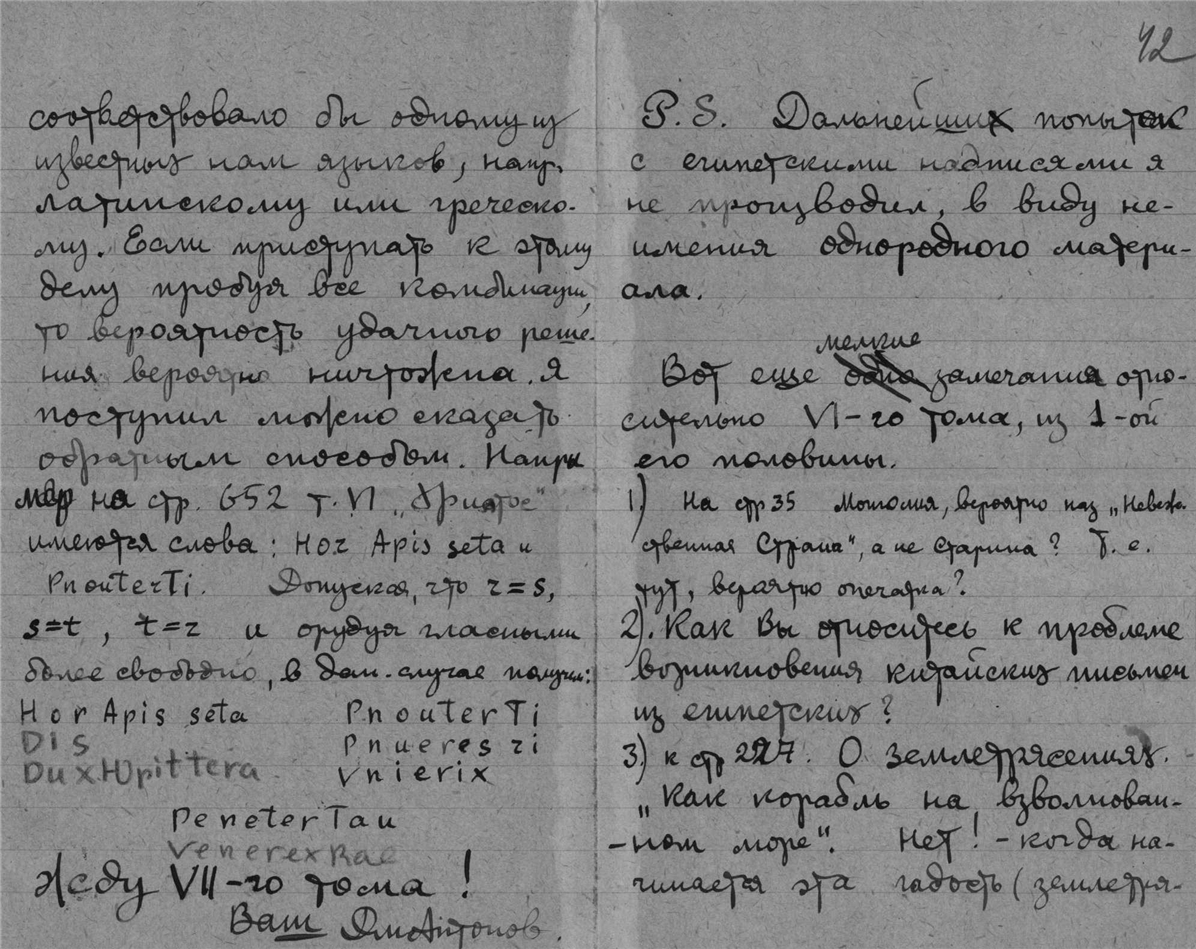 соответствовало бы одному из
известных нам языков, напр.
латинскому или греческо-
му. Если приступать к этому
делу пробуя все комбинации,
то вероятность удачного реше-
ния вероятно ничтожна. Я
поступил можно сказать
обратным способом. Напри
мер на стр. 652 т. VI „Христос"
имеются слова: Hor Apis seta и
PnouterTi. Допуская, что r=s,
s=t, t=r и орудуя гласными
более свободно, в дан. случае получим:
Hor Apis seta PnouterTi
DIS Pnueres ri
Dux Юpittera Vnierix
PeneterTau
Venerex Rae
Жду VII-го тома!
Ваш Дм Антонов.
42
P.S. Дальнейших попыток
с египетскими надписями я
не производил, в виду не-
имения однородного матери-
ала.
мелкие
Вот еще замечания отно-
сительно VI-го тома, из 1-ой
его половины.
1) На стр 35 Монголия, вероятно наз „Невеже-
ственная Страна", а не Старина? Т. е.
тут, вероятно опечатка?
2). Как Вы относитесь к проблеме
возникновения китайских письмен
из египетских?
3) к стр 227. О землетрясениях.
„Как корабль на взволнован-
-ном море". Нет! - когда на-
чинается эта гадость (землетря-